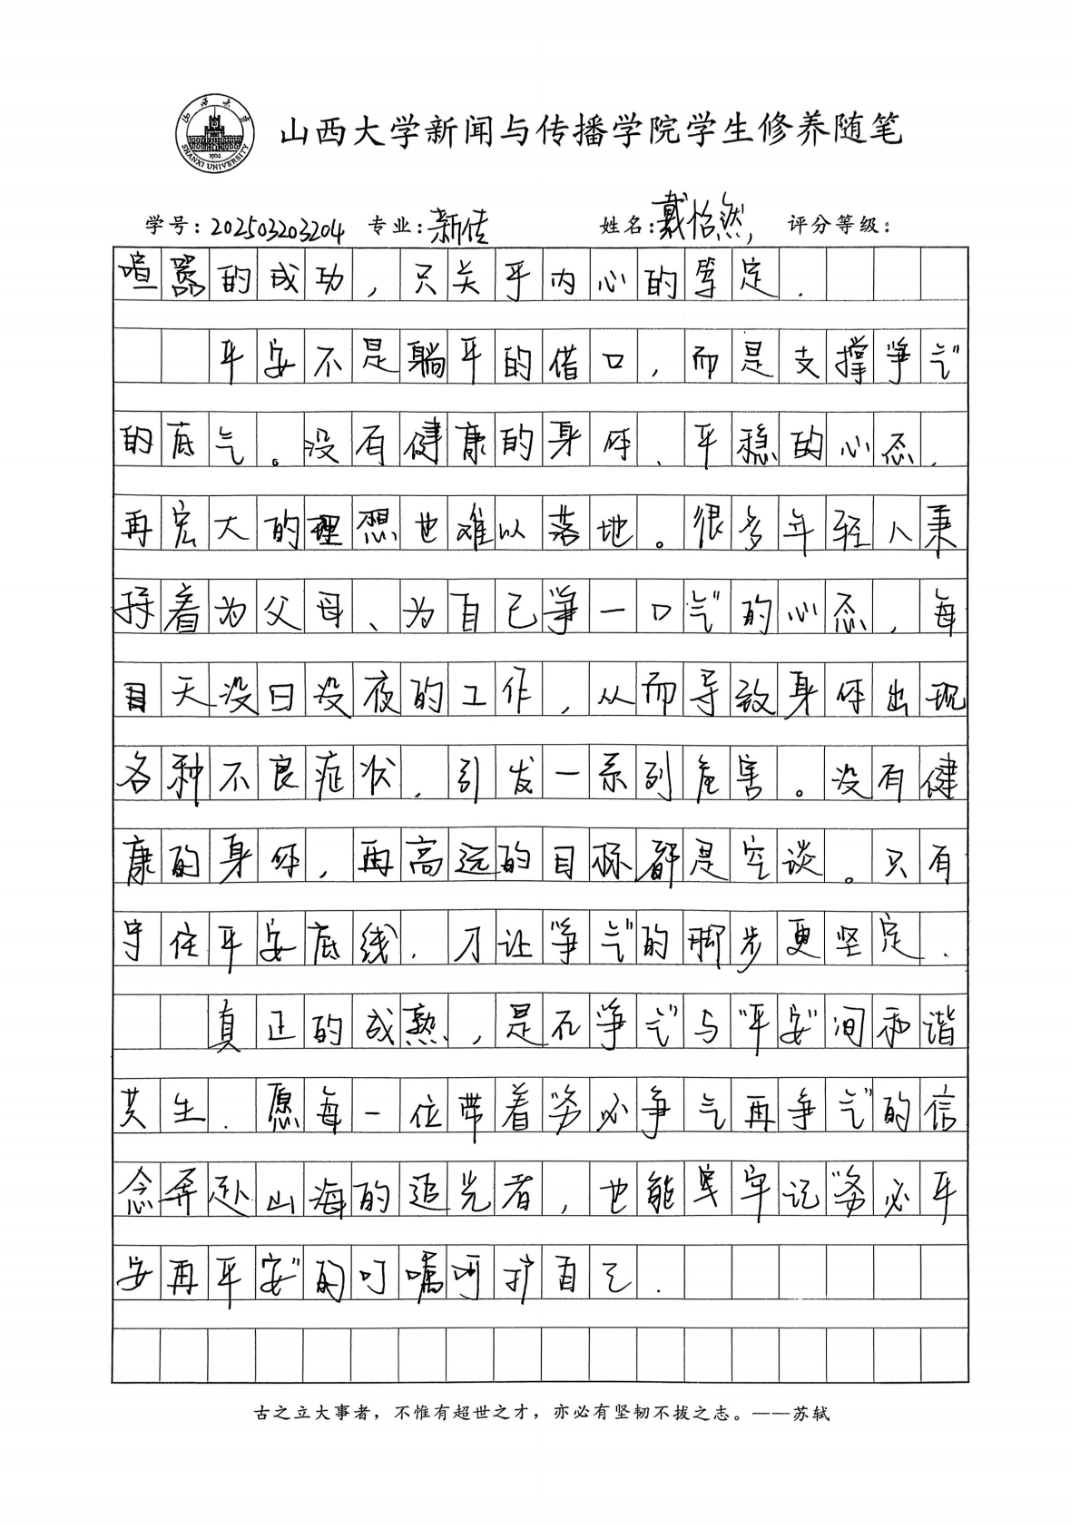 山西大学
SHANXI UNIVERSITY
1902
山西大学新闻与传播学院学生修养随笔
学号：202503203204 专业：新传 姓名：戴怡然 评分等级：
喧嚣的成功，只关乎内心的笃定.
平安不是躺平的借口，而是支撑争气”
的底气。没有健康的身体、平稳的心态，
再宏大的理想也难以落地。很多年轻人秉
持着为父母、为自己争一口气”的心态，每
天没日没夜的工作，从而导致身体出现
各种不良症状，引发一系列危害。没有健
康的身体，再高远的目标都是空谈。只有
守住平安底线，才让“争气”的脚步更坚定.
真正的成熟，是在争气”与“平安”间和谐
共生.愿每一位带着“务必争气再争气”的信
念奔赴山海的追光者，也能牢牢记“务必平
安再平安”的叮嘱呵护自己.
古之立大事者，不惟有超世之才，亦必有坚韧不拔之志。——苏轼